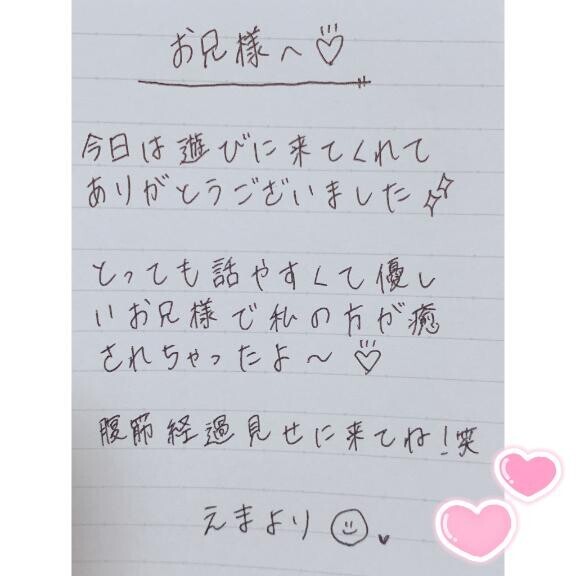 お兄様へ♡
今日は遊びに来てくれて
ありがとうございました✨
とっても話やすくて優し
いお兄様で私の方が癒
されちゃったよ〜♡
腹筋経過見せに来てね!笑
えまより☺♥